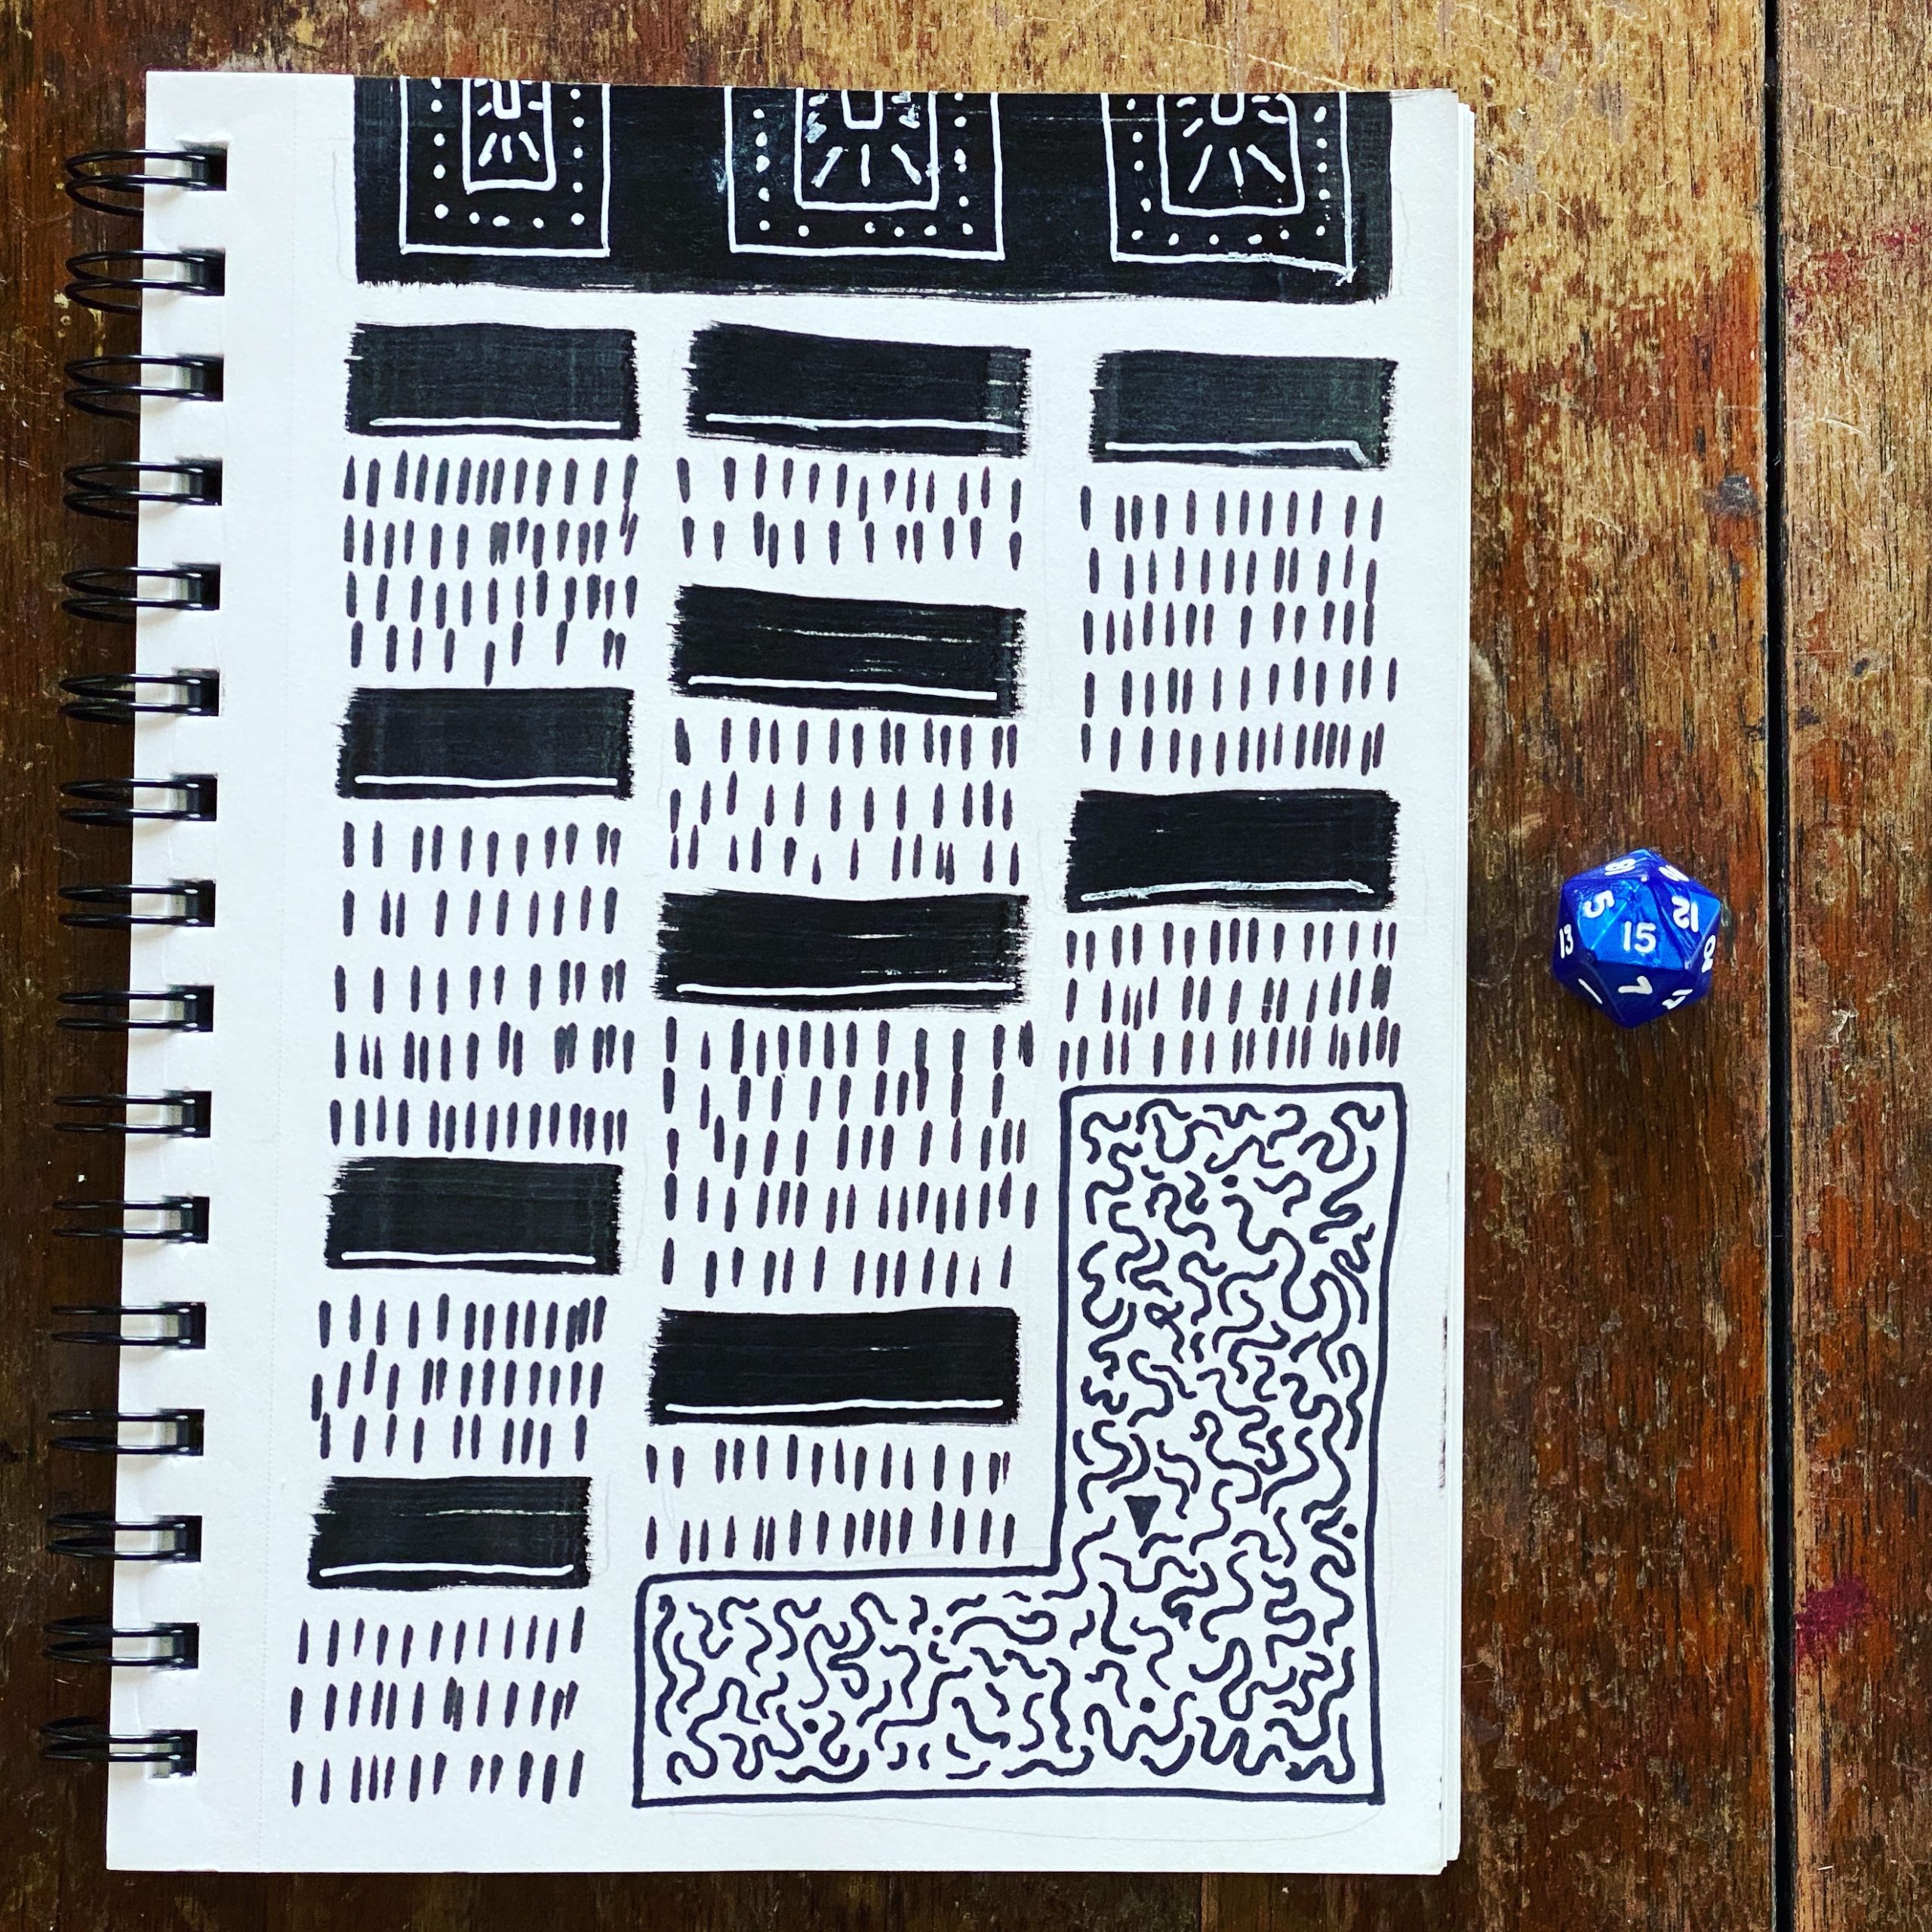 5
12
13
15
7
1